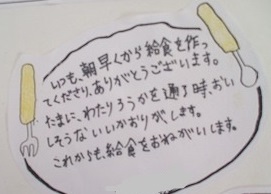 いつも、朝早くから給食を作っ
てくださり、ありがとうございます。
たまに、わたりろうかを通り時、おい
しそうないいかおりがします。
これからも、給食をおねがいします。